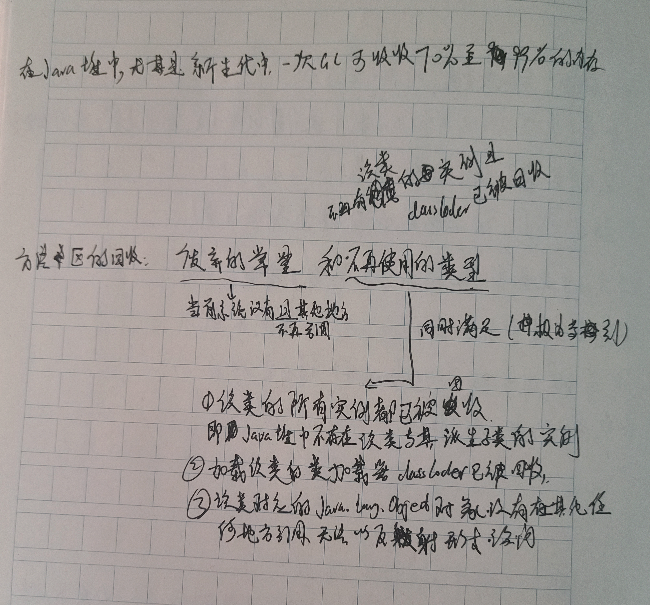 在Java堆中,尤其是新生代中,一次GC可收收70%至99%的内存
该类的实例且
不再有 classloder已被回收
方法区的回收: 废弃的常量 和不再使用的类型
当前系统没有且其他地方
不在引用
同时满足
①该类的所有实例都已被回收
即Java堆中不存在该类与其派生子类的实例
②加载该类的类加载器classloder已被回收,
③该类对应的Java.lang.Object对象没有在其他任
何地方引用 无法以反射形式访问